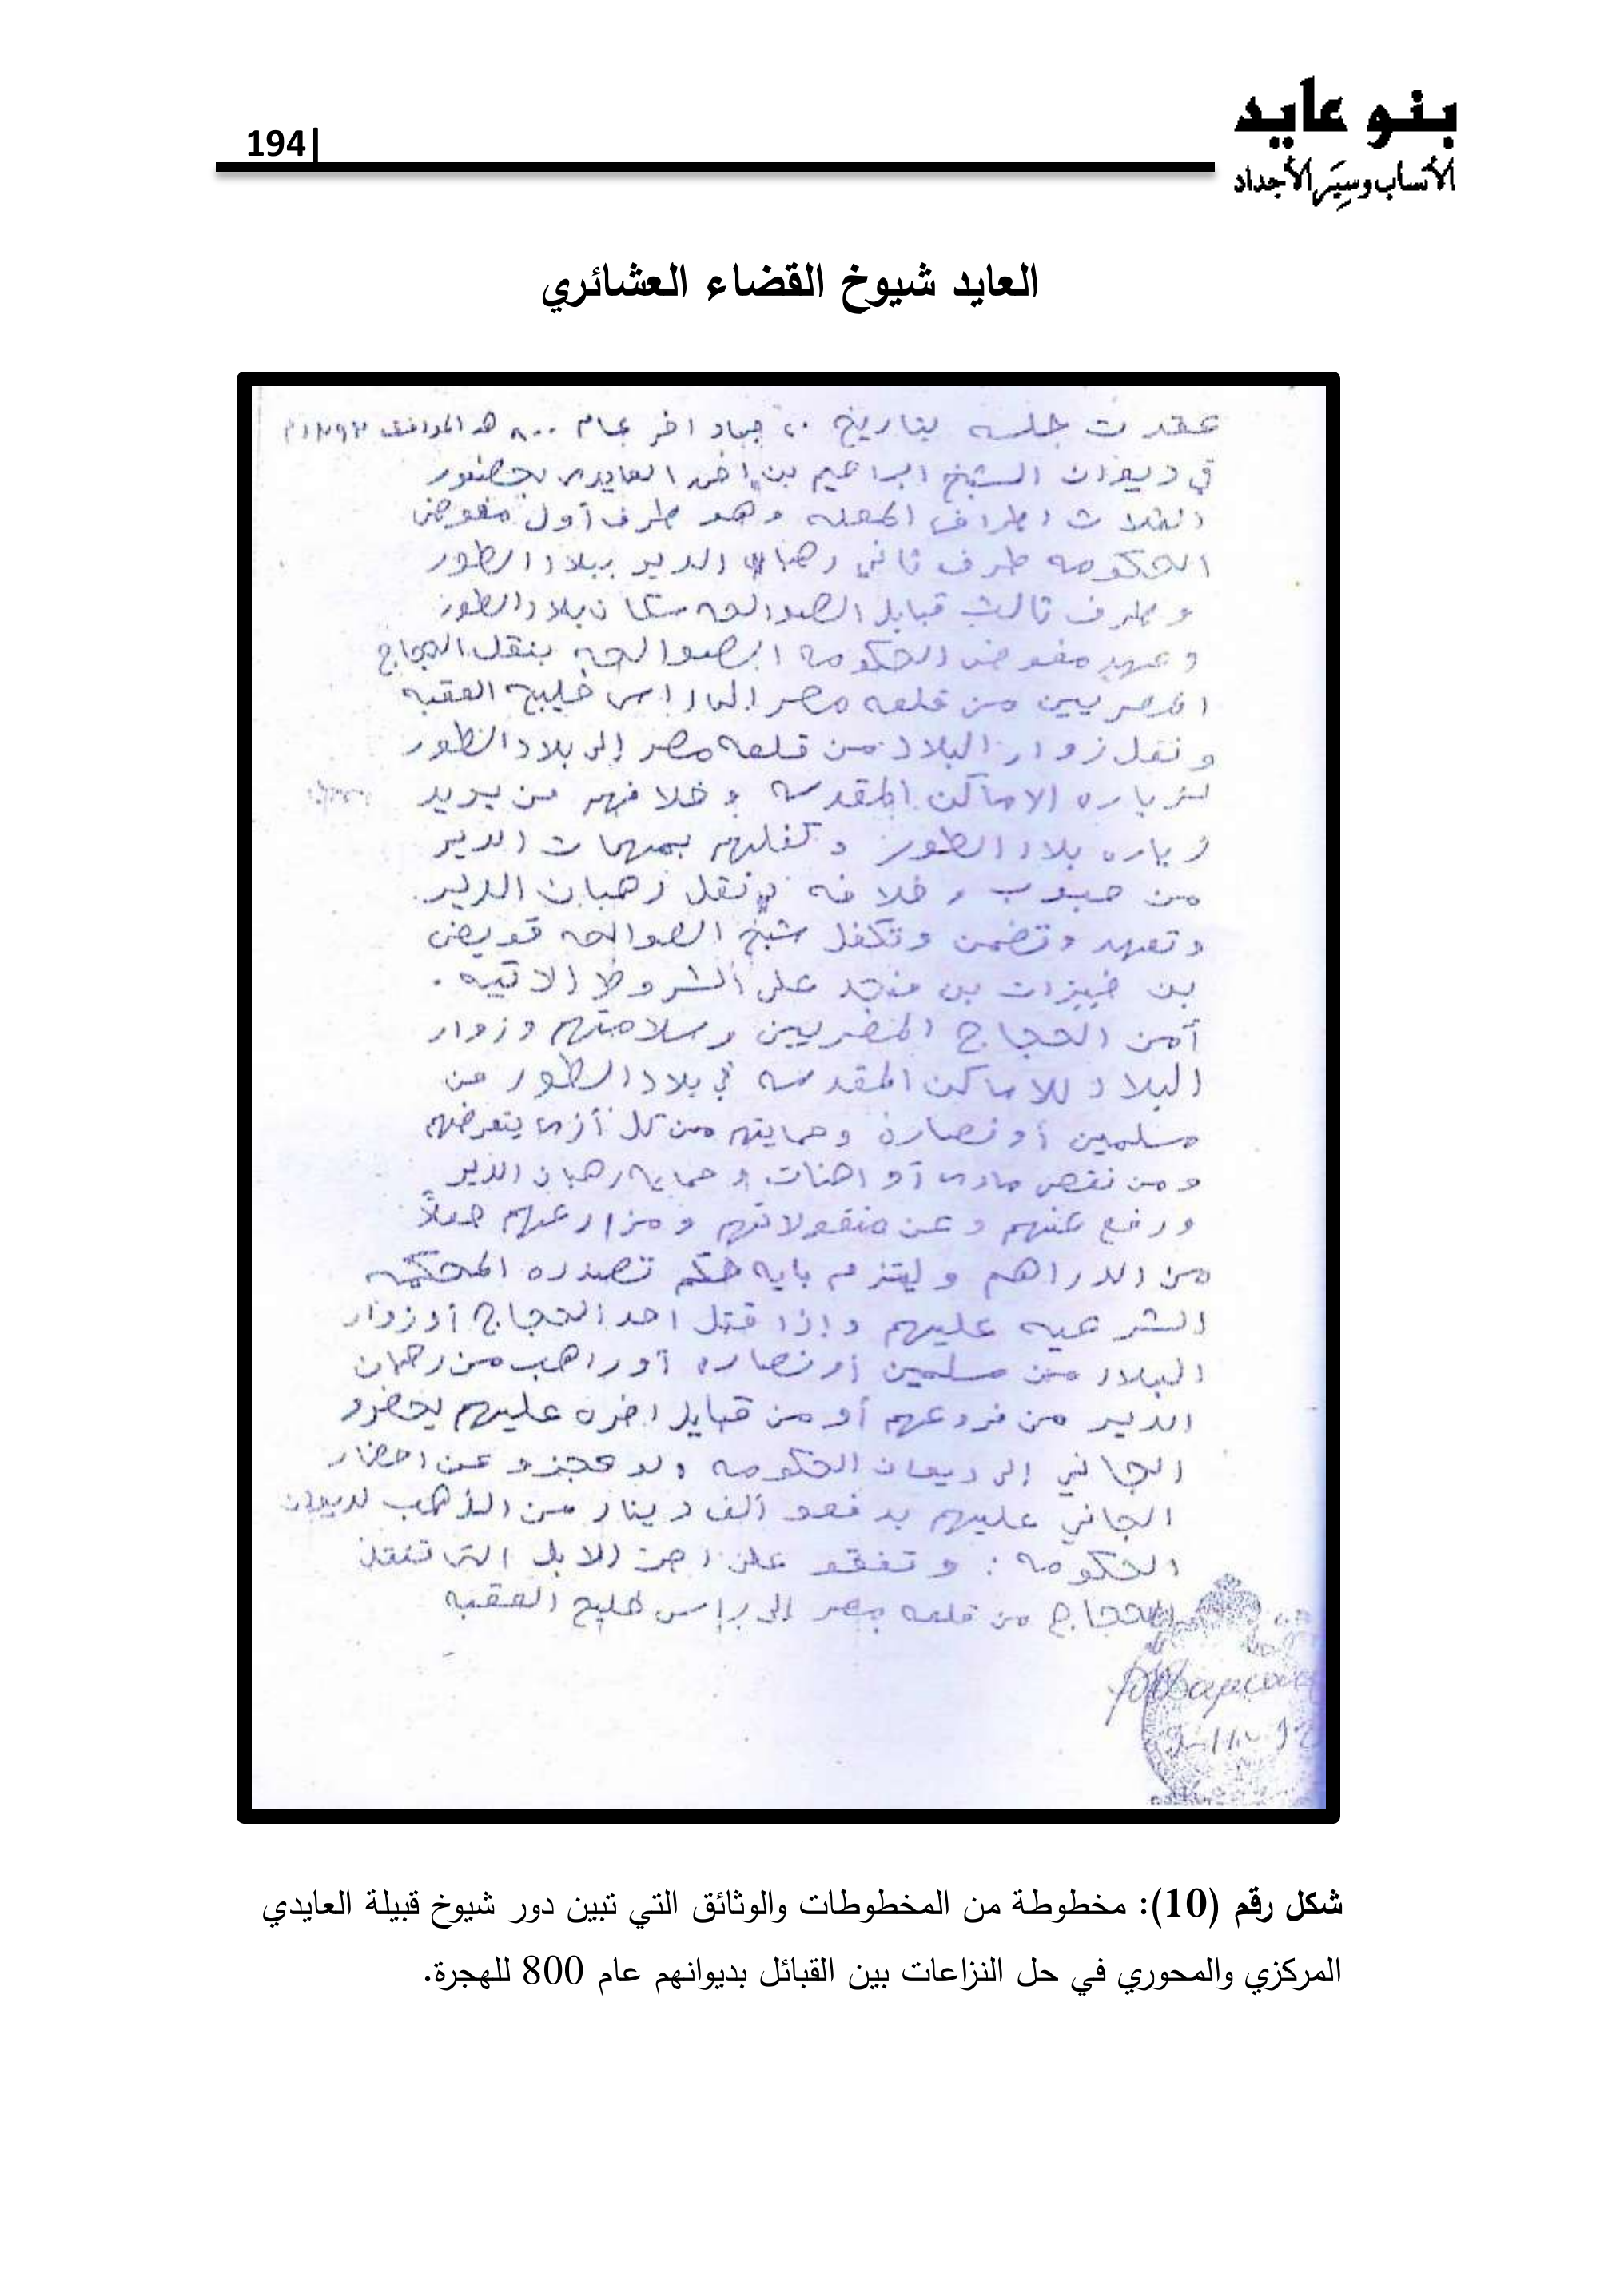 بنو عايد
الأنساب وسير الأجداد
194|
العايد شيوخ القضاء العشائري
عقدت جلسه بتاريخ ٢٠ جماد اخر عام ٨٠٠ هـ الموافق
في ديوان الشيخ ابراهيم بن العايدى بحضور
الثلاث اطراف المعنه وهو طرف أول مفوض
الحكومه طرف ثاني رهبان الدير ببلاد الطور
وطرف ثالث قبايل الصوالحه سكان بلاد الطور
وعهد مفوض الحكومه الصوالحه بنقل الحجاج
المصريين من قلعه مصر الى راس خليج العقبه
ونقل زوار البلاد من قلعه مصر إلى بلاد الطور
لزياره الاماكن المقدسه وخلافهم من يريد
زياره بلاد الطور وكفلهم بمهمات الدير
من حبوب وخلافه ونقل رهبان الدير.
وتعهد وتضمن وتكفل شيخ الصوالحه قويض
بن خيزات بن منجد على الشروط الاتيه.
أمن الحجاج المصريين وسلامتهم وزوار
البلاد للاماكن المقدسه في بلاد الطور من
مسلمين أو نصاره وحمايتهم من كل أزى يتعرضهم
ومن نقص مادى أو اهنات وحمايه رهبان الدير
ورفع عنهم وعن منقولاتهم ومزارعهم حملاً
من الدراهم وليتزم بايه حكم تصدره المحكمه
الشرعيه عليهم وإذا قتل احد الحجاج أو زوار
البلاد من مسلمين أو نصاره أو راهب من رهبان
الدير من فروعهم أو من قبايل اخره عليهم يحضرو
الجاني إلى ديوان الحكومه ولو عجزو عن احضار
الجاني عليهم يدفعو ألف دينار من الذهب لديوان
الحكومه: وتفقو على اجرة الابل التى تنقل
الحجاج من قلعه مصر إلى راس خليج العقبه
شكل رقم (10): مخطوطة من المخطوطات والوثائق التي تبين دور شيوخ قبيلة العايدي
المركزي والمحوري في حل النزاعات بين القبائل بديوانهم عام 800 للهجرة.